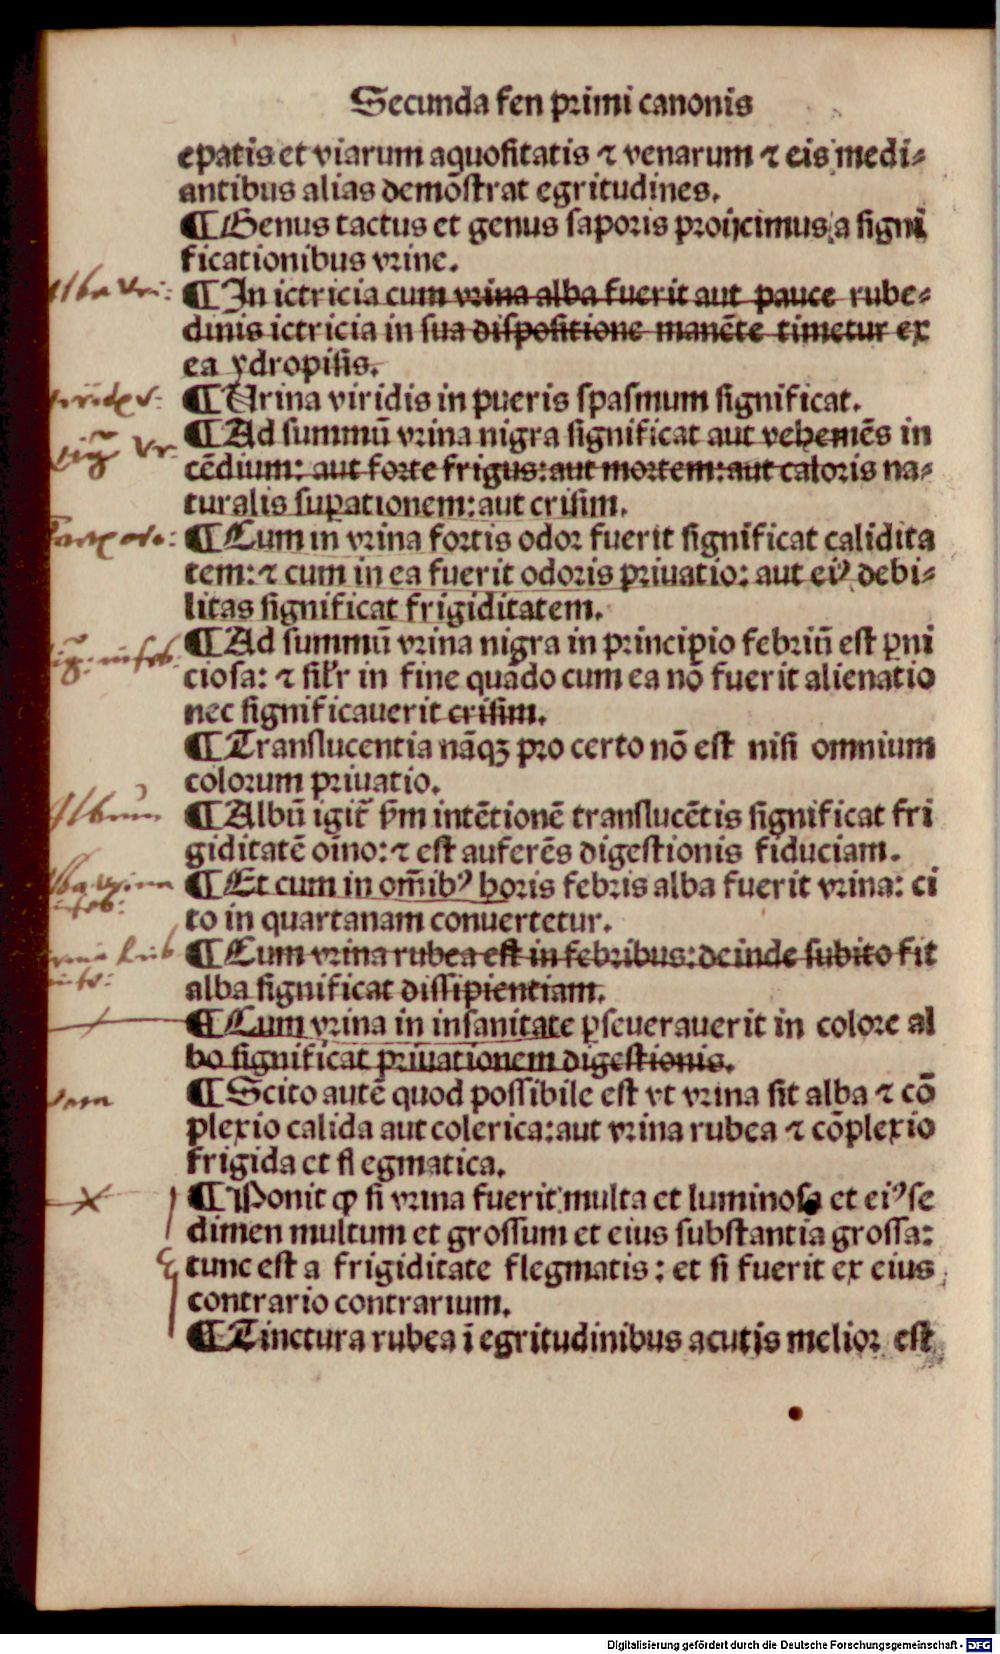 Secunda fen primi canonis
epatis et viarum aquositatis ⁊ venarum ⁊ eis medi⸗
antibus alias demōstrat egritudines.
¶ Genus tactus et genus saporis proijcimus a signi
ficationibus vrine.
Alba vri:
¶ In ictricia cum vrina alba fuerit aut pauce rube⸗
dinis ictricia in sua dispositione manēte timetur ex
ea ydropisis.
¶ Urina viridis in pueris spasmum significat.
¶ Ad summū vrina nigra significat aut vehemēs in
cēdium: aut forte frigus: aut mortem: aut caloris na⸗
turalis suꝑationem: aut crisim.
¶ Cum in vrina fortis odor fuerit significat calidita
tem: ⁊ cum in ea fuerit odoris priuatio: aut eiꝰ debi⸗
litas significat frigiditatem.
¶ Ad summū vrina nigra in principio febriū est ꝑni
ciosa: ⁊ sil'r in fine quādo cum ea nō fuerit alienatio
nec significauerit crisim.
¶ Translucentia nāqꝫ pro certo nō est nisi omnium
colorum priuatio.
Album
¶ Albū igit̄ ẜm intētionē translucētis significat fri
giditatē oīno: ⁊ est auferēs digestionis fiduciam.
alba vrina
in feb:
¶ Et cum in om̄ibꝰ horis febris alba fuerit vrina: ci
to in quartanam conuertetur.
¶ Cum vrina rubea est in febribus: deinde subito fit
alba significat dissipientiam.
¶ Cum vrina in insanitate ꝑseuerauerit in colore al
bo significat priuationem digestionis.
¶ Scito autē quod possibile est vt vrina sit alba ⁊ cō
plexio calida aut colerica: aut vrina rubea ⁊ cōplexio
frigida et flegmatica.
¶ Ponit ꝙ si vrina fuerit multa et luminosa et eiꝰ se
dimen multum et grossum et eius substantia grossa:
tunc est a frigiditate flegmatis: et si fuerit ex eius
contrario contrarium.
¶ Tinctura rubea ī egritudinibus acutis melior est
Digitalisierung gefördert durch die Deutsche Forschungsgemeinschaft - DFG